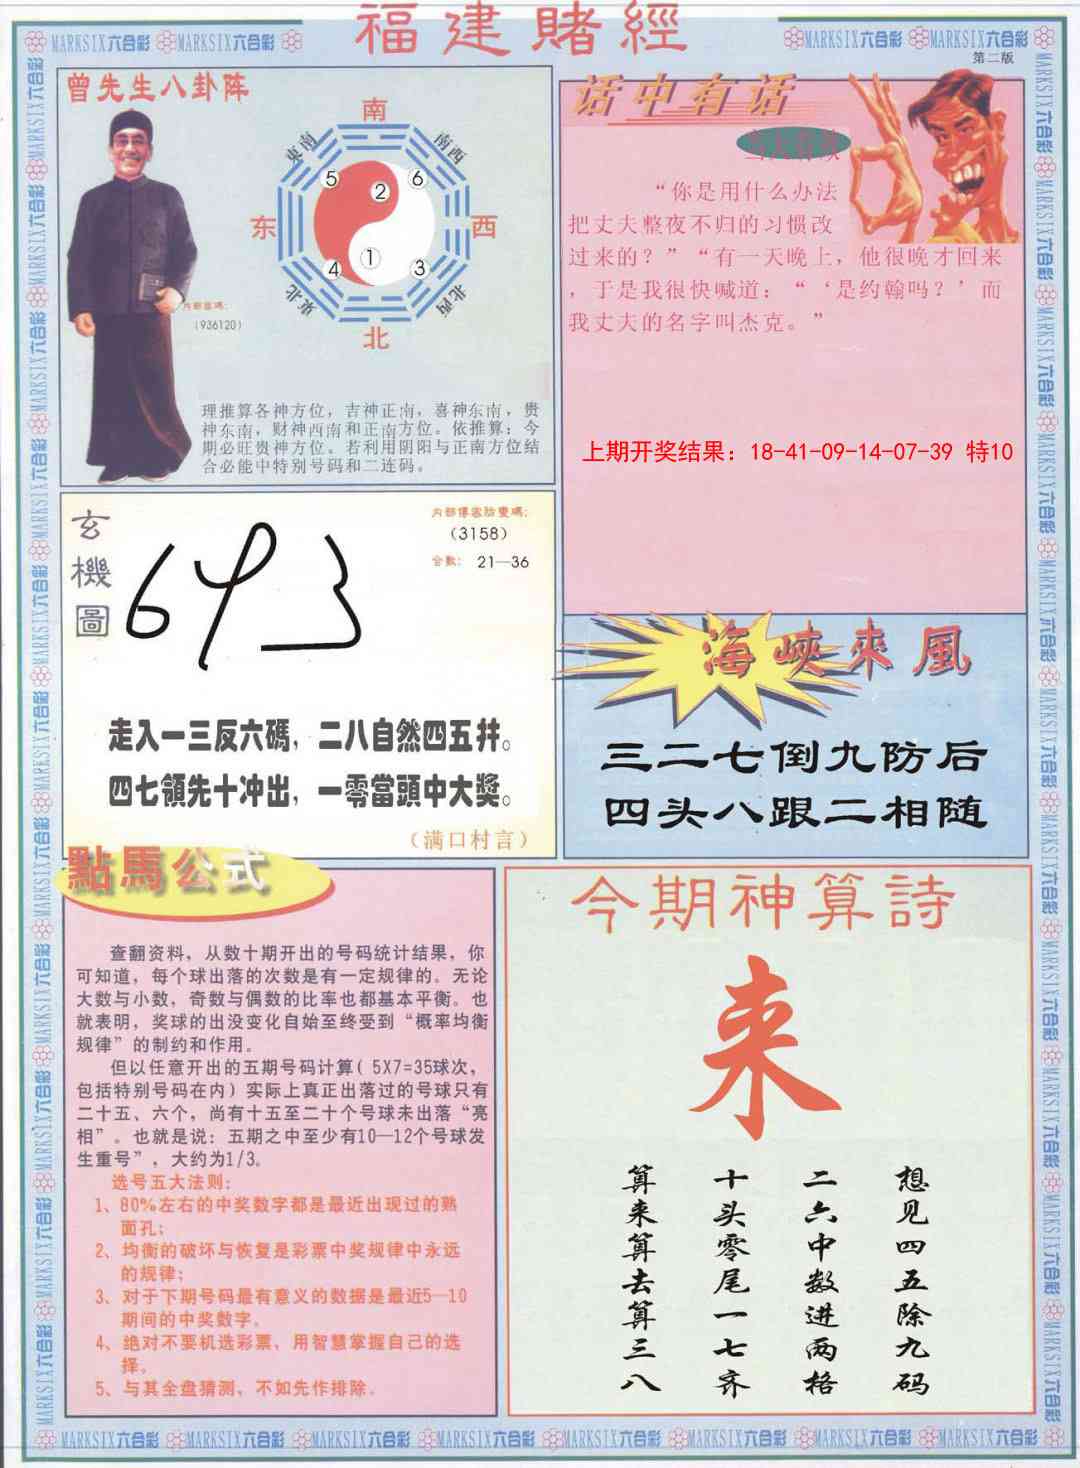 福建賭經
MARKSIX六合彩 MARKSIX六合彩 MARKSIX六合彩 MARKSIX六合彩
第二版
曾先生八卦阵
南
東南 南西
5 2 6
东 西
4 1 3
東北 北西
北
(936120)
理推算各神方位，吉神正南，喜神东南，贵
神东南，财神西南和正南方位。依推算：今
期必旺贵神方位。若利用阴阳与正南方位结
合必能中特别号码和二连码。
话中有话
“你是用什么办法
把丈夫整夜不归的习惯改
过来的？”“有一天晚上，他很晚才回来
，于是我很快喊道：“‘是约翰吗？’而
我丈夫的名字叫杰克。”
上期开奖结果：18-41-09-14-07-39 特10
玄機圖
(3158)
合數： 21—36
走入一三反六碼，二八自然四五拜。
四七領先十冲出，一零當頭中大獎。
（满口村言）
海峽來風
三二七倒九防后
四头八跟二相随
點馬公式
查翻资料，从数十期开出的号码统计结果，你
可知道，每个球出落的次数是有一定规律的。无论
大数与小数，奇数与偶数的比率也都基本平衡。也
就表明，奖球的出没变化自始至终受到“概率均衡
规律”的制约和作用。
但以任意开出的五期号码计算( 5X7=35球次，
包括特别号码在内）实际上真正出落过的号球只有
二十五、六个，尚有十五至二十个号球未出落“亮
相”。也就是说：五期之中至少有10—12个号球发
生重号”，大约为1/3。
选号五大法则：
1、80%左右的中奖数字都是最近出现过的熟
面孔；
2、均衡的破坏与恢复是彩票中奖规律中永远
的规律；
3、对于下期号码最有意义的数据是最近5—10
期间的中奖数字。
4、绝对不要机选彩票，用智慧掌握自己的选
择。
5、与其全盘猜测，不如先作排除。
今期神算詩
来
想见四五除九码
二六中数进两格
十头零尾一七齐
算来算去算三八
MARKSIX六合彩 MARKSIX六合彩 MARKSIX六合彩 MARKSIX六合彩 MARKSIX六合彩 MARKSIX六合彩 MARKSIX六合彩 MARKSIX六合彩